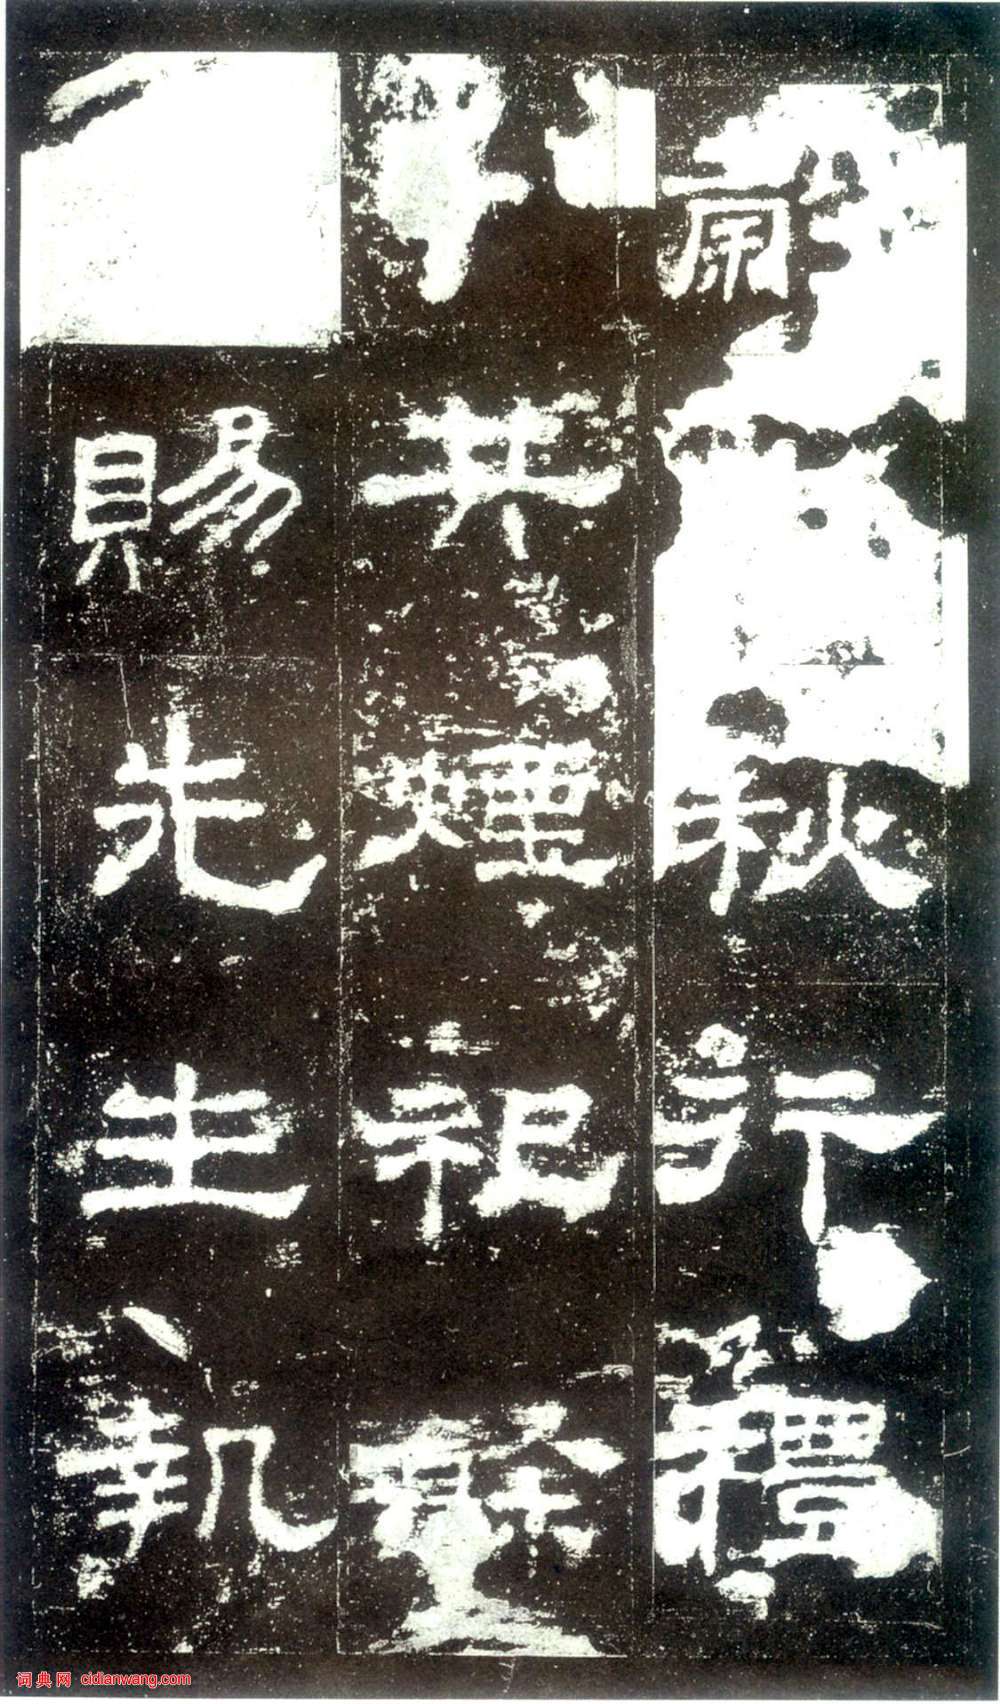 秋行禮
共煙祀餘
賜先生執
词典网 cidianwang.com